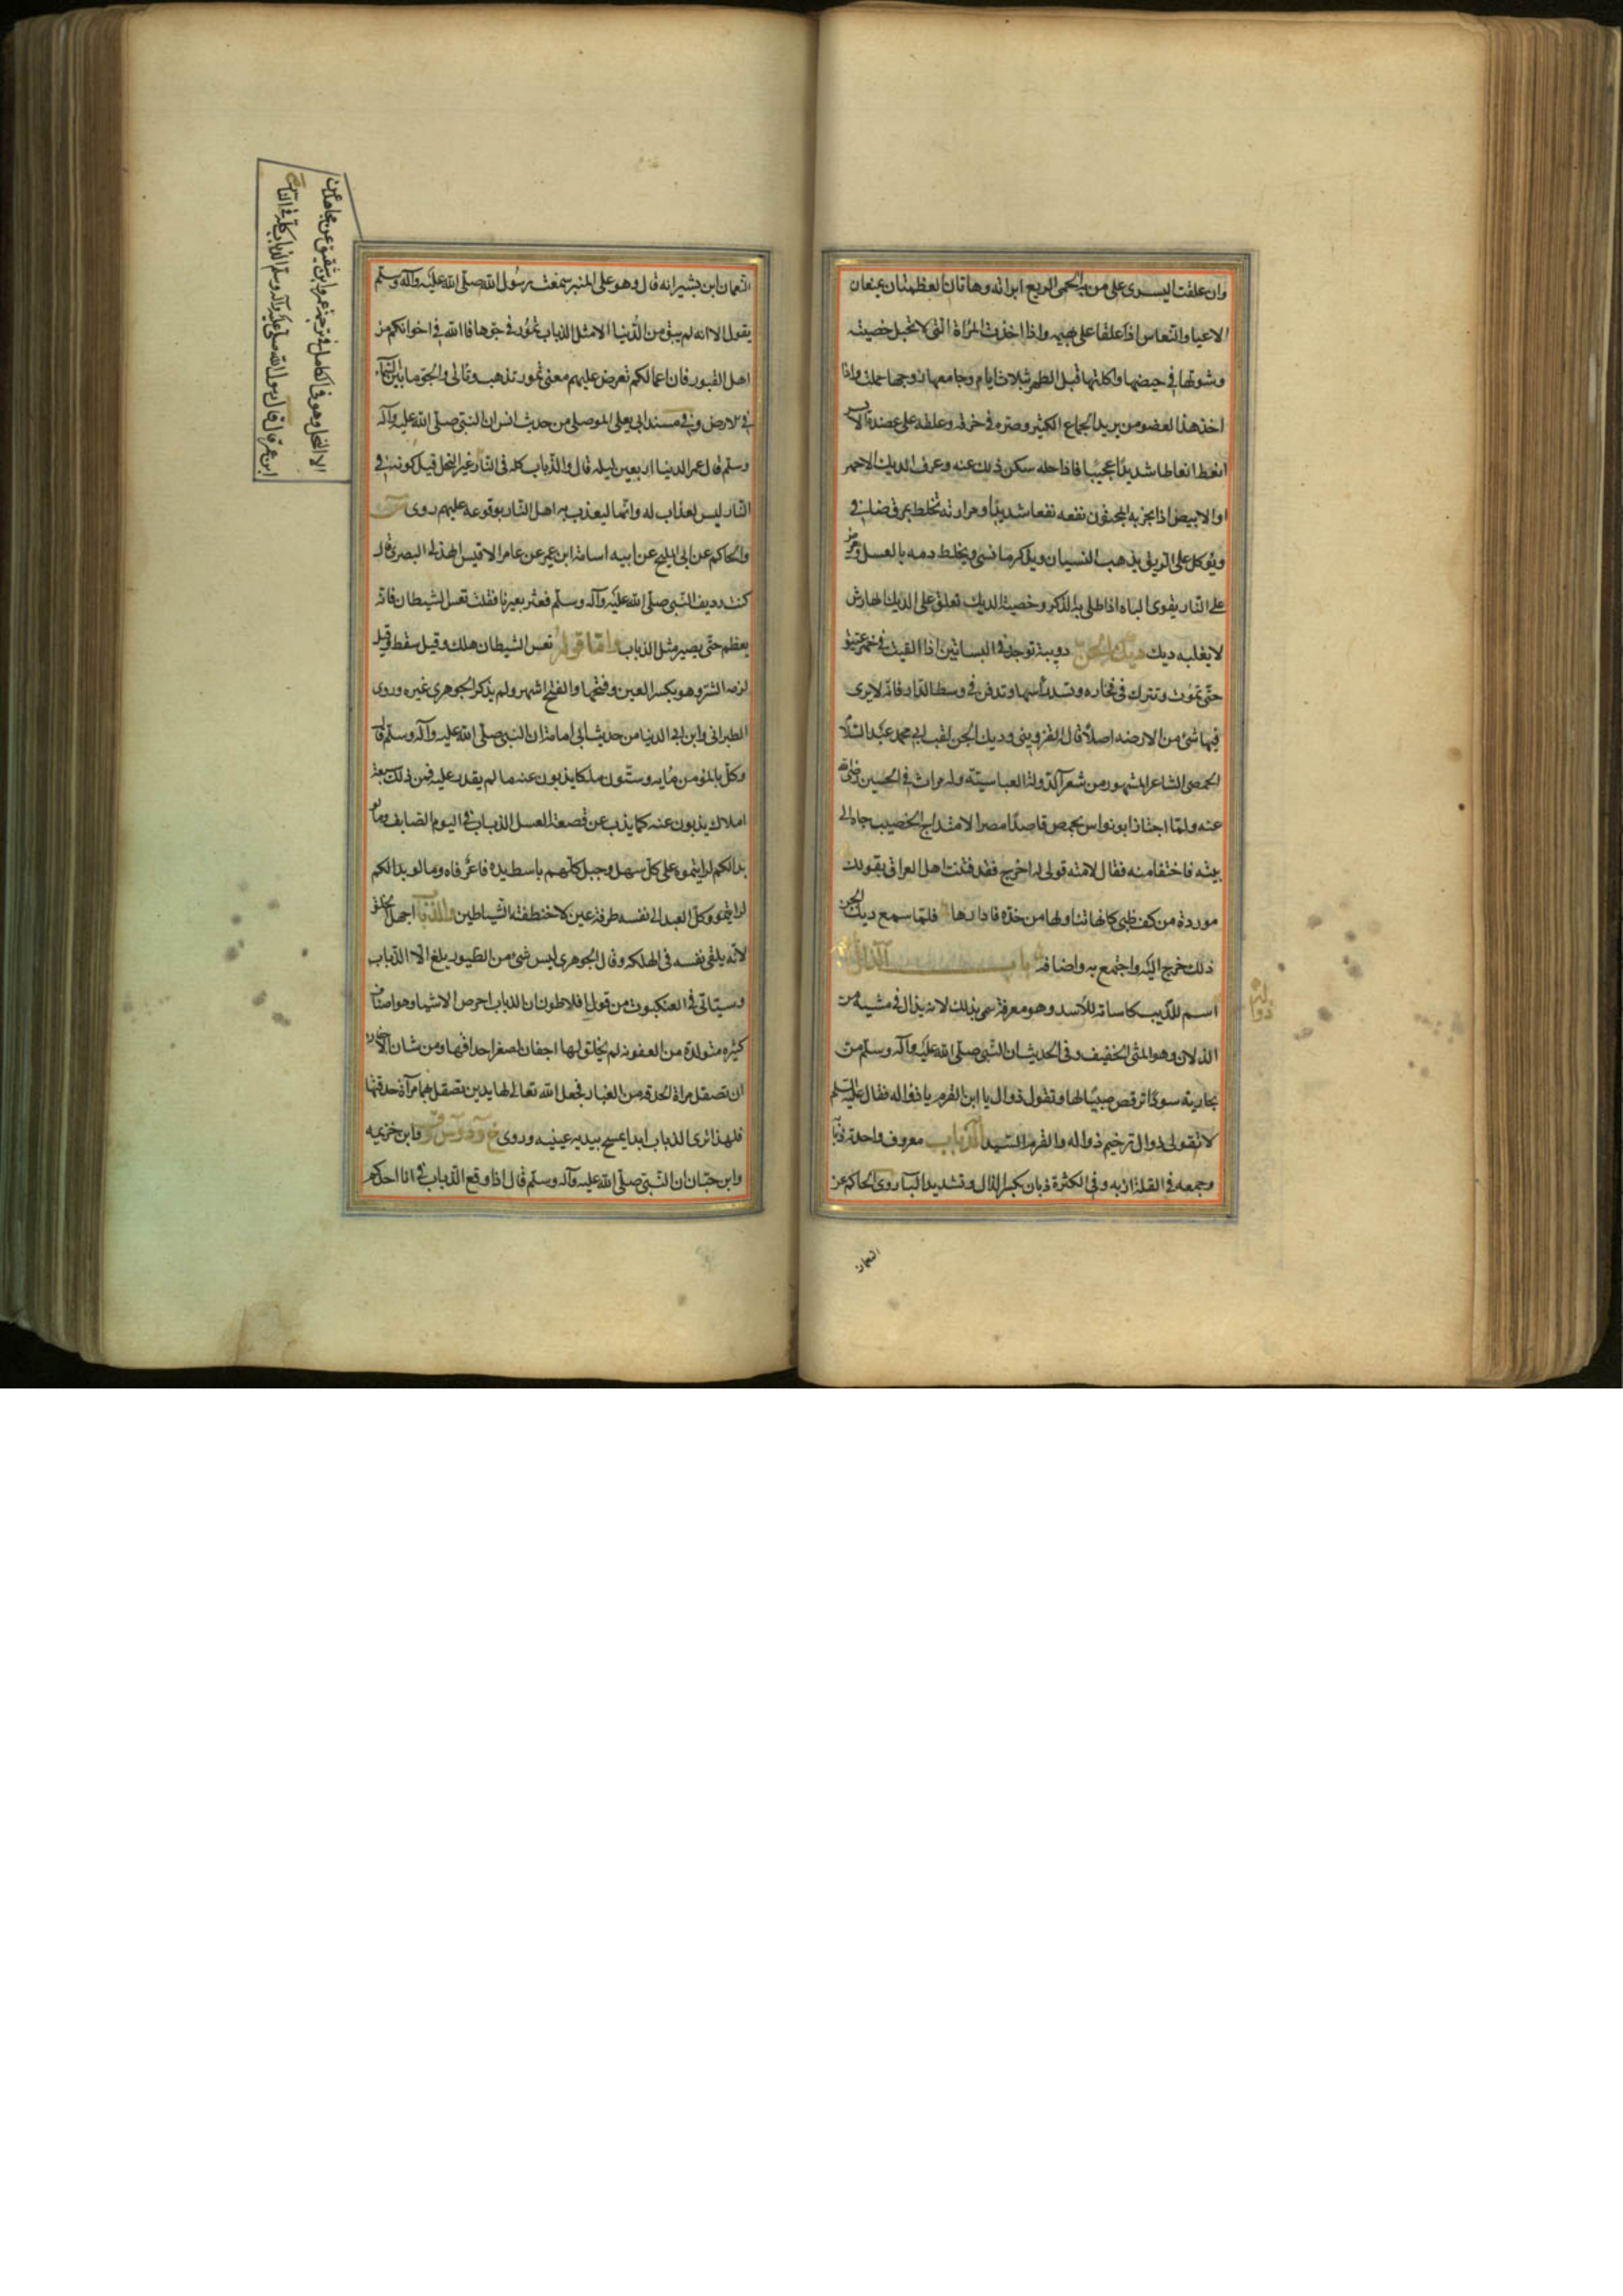 وان علقت اليسرى على من به الحمى الربع ابراته وهاتان العظمتان يمنعان
الاعيا والنعاس اذا علقا على بهيمه واذا اخذت المراة التى لا تحبل خصيته
وشوتها فى حيضها واكلتها قبل الطهر ثلاث ايام وجامعها زوجها حملت واذا
اخذ هذا لعضو من يريد الجماع الكثير وصره فى خرقه وعلقه على عضده الايسر
انعظ انعاظا شديدًا عجيبًا فاذا حله سكن ذلك عنه وعرف الديك الاحمر
او الابيض اذا بخر به المجنون نفعه نفعا شديدًا ومرارته تخلط بمرق ضان
ويوكل على الريق يذهب النسيان ويذكر ما نسى ويخلط دمه بالعسل
على النار يقوى الباه اذا طلى به الذكر وخصية الديك تعلق على الديك الهارش
لا يغلبه ديك ديك الجن دويبة توجد فى البساتين اذا القيت فى خمر عتيق
حتى تموت وتترك فى فخاره وتسد راسها وتدفن فى وسط الدار فانه لا يرى
فيها شئ من الارضه اصلاً قال القزوينى وديك الجن لقب ابى محمد عبد السلام
الحمصى الشاعر المشهور من شعرآ الدولة العباسيّة وله مراث فى الحسين رضى الله
عنه ولما اجتاز ابو نواس بحمص قاصدًا مصر الامتداح الخصيب جاه الى
بيته فاختفا منه فقال لامته قولى له اخرج فقد فتنت اهل العراق بقولك
موردة من كف ظبى كانها تناولها من خده فادارها فلما سمع ديك الجن
ذلك خرج اليه واجتمع به واضافه باب الذال
ذواله
اسم للذيب كاسامه للاسد وهو معرفة سمى بذلك لانه يذال فى مشيته من
الذلان وهو المشى الخفيف وفى الحديث ان النبى صلى الله عليه وآله وسلم مر
بجارية سودا ترقص صبيًا لها وتقول ذوال يا ابن القرم يا ذواله فقال عليه السلم
لا تقولى ذوال ترخيم ذواله والقرم السيد الذباب معروف واحدته ذبابة
وجمعه فى القلة اذبه وفى الكثرة ذبان بكسر الذال وتشديد البآ روى الحاكم عن
النعمان
النعمان ابن بشير انه قال وهو على المنبر سمعت رسول الله صلى الله عليه وآله وسلم
يقول الا انه لم يبق من الدنيا الا مثل الذباب تمور فى جوها فا الله فى اخوانكم من
اهل القبور فان اعمالكم تعرض عليهم معنى تمور تذهب وتاتى والجو ما بين السماء
والارض وفى مسند ابى يعلى الموصلى من حديث انس ان النبى صلى الله عليه وآله
وسلم قال عمر الدنيا اربعين ليله قال والذباب كله فى النار غير النحل قيل كونه فى
النار ليس لعذاب له وانما ليعذب به اهل النار بوقوعه عليهم روى
والحاكم عن ابى المليح عن ابيه اسامة ابن عمير عن عامر الاقيس الهذلى البصرى قال
كنت رديف النبى صلى الله عليه وآله وسلم فعثر بعيرنا فقلت تعس الشيطان فانه
يعظم حتى يصير مثل الذباب واما قوله تعس الشيطان هلك وقيل سقط وقيل
لزمه الشر وهو بكسر العين وفتحها والفتح اشهر ولم يذكر الجوهرى غيره وروى
الطبرانى وابن ابى الدنيا من حديث ابى امامة ان النبى صلى الله عليه وآله وسلم قال
وكل بالمؤمن مايه وستون ملكا يذبون عنه ما لم يقدر عليه فمن ذلك سبعة
املاك يذبون عنه كما يذب عن قصعة العسل الذباب فى اليوم الصايف وما لو
بدا لكم لرايتموه على كل سهل وجبل كلهم باسط يده فاغر فاه وما لو بدا لكم
لرايتموه وكل العبد الى نفسه طرفة عين لاختطفته الشياطين والذباب اجهل الخلق
لانه يلقى نفسه فى الهلكه وقال الجوهرى ليس شئ من الطيور يلغ الا الذباب
وسياتى فى العنكبوت من قول افلاطون ان الذباب احرص الاشيا وهو اصناف
كثيره متولدة من العفونه لم يخلق لها اجفان لصغر احداقها ومن شان الاجفان
ان تصقل مراة الحدقه من الغبار فجعل الله تعالى لها يدين تصقل بهما مرآة حدقتها
فلهذا ترى الذباب ابدا يمسح بيديه عينيه وروى وابن خزيمه
وابن حبان ان النبى صلى الله عليه وآله وسلم قال اذا وقع الذباب فى انا احدكم
الا النحل وهو فى الكامل فى ترجمة عمرو ابن شقيق عن مجاهد عن
ابن عمر قال قال رسول الله صلى الله عليه وآله وسلم الذباب كله فى النار